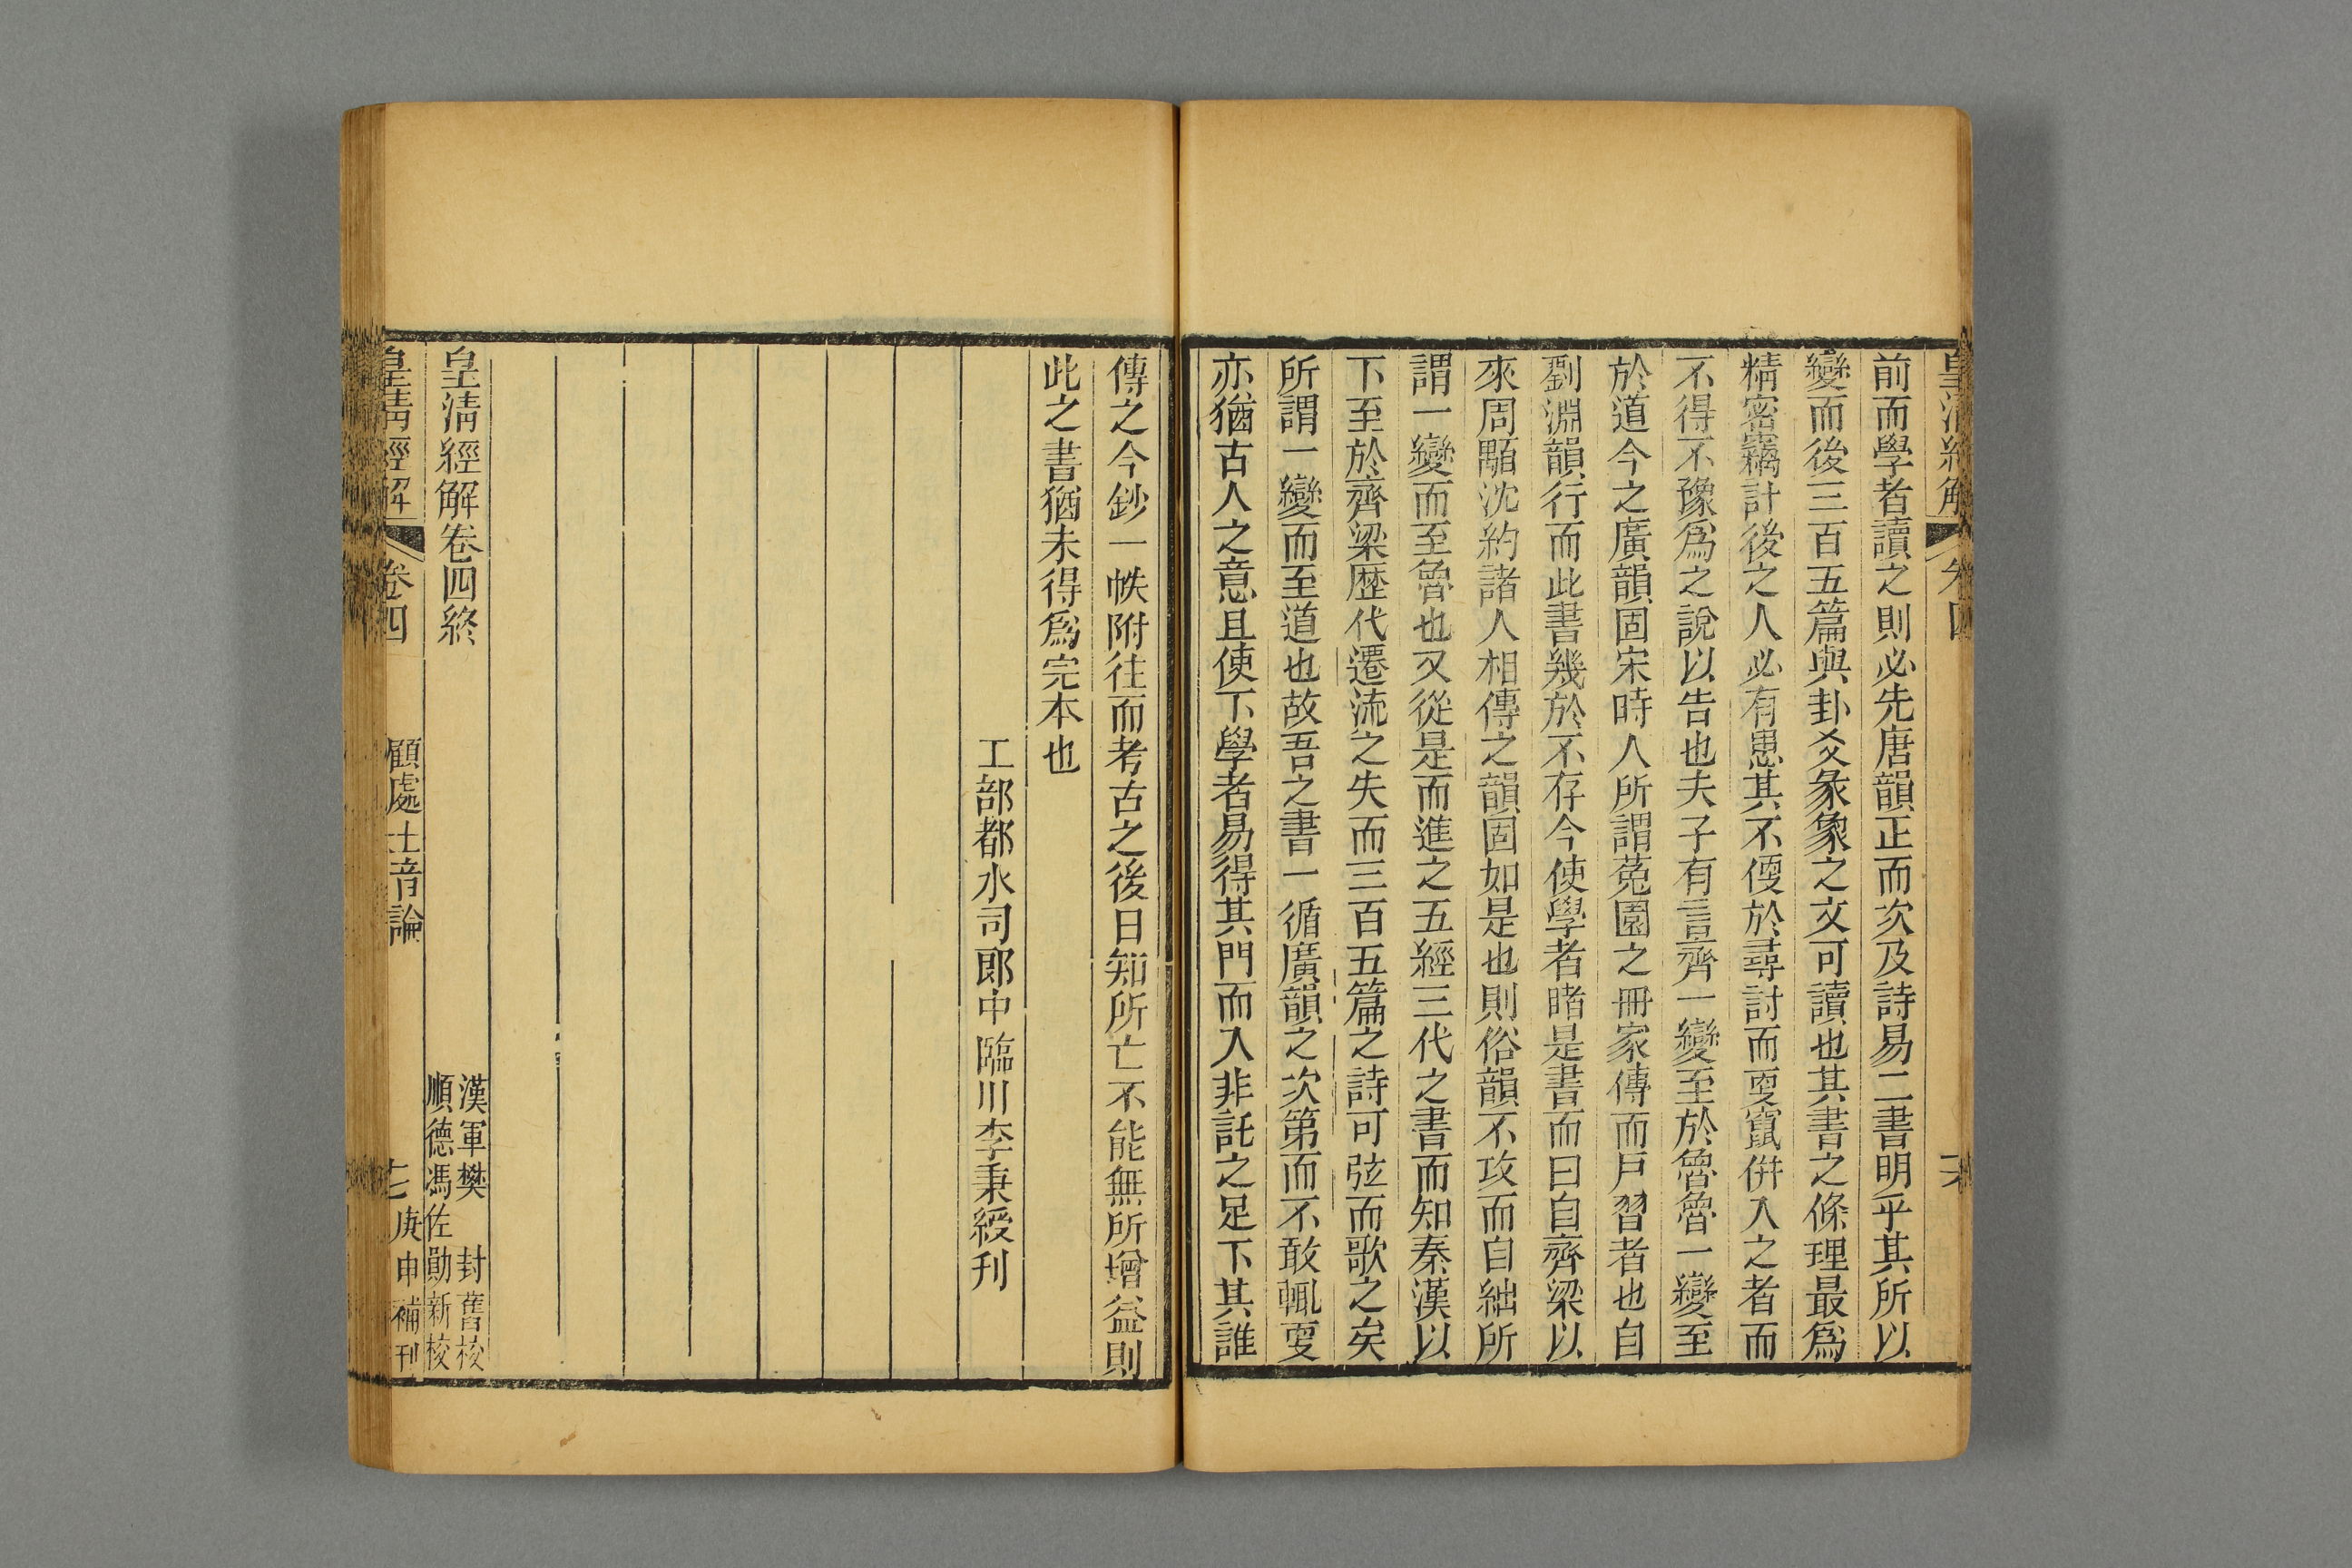 皇清經解 卷四
前而學者讀之則必先唐韻正而次及詩易二書明乎其所以
變而後三百五篇與卦爻彖象之文可讀也其書之條理最爲
精密竊計後之人必有患其不便於尋討而更竄併入之者而
不得不豫爲之說以告也夫子有言齊一變至於魯魯一變至
於道今之廣韻固宋時人所謂菟園之冊家傳而戶習者也自
劉淵韻行而此書幾於不存今使學者睹是書而曰自齊梁以
來周顒沈約諸人相傳之韻固如是也則俗韻不攻而自絀所
謂一變而至魯也又從是而進之五經三代之書而知秦漢以
下至於齊梁歴代遷流之失而三百五篇之詩可弦而歌之矣
所謂一變而至道也故吾之書一循廣韻之次第而不敢輒更
亦猶古人之意且使下學者易得其門而入非託之足下其誰
傳之今鈔一帙附往而考古之後日知所亡不能無所增益則
此之書猶未得爲完本也
工部都水司郎中臨川李秉綬刊
皇清經解卷四終
漢軍樊封舊校
順德馮佐勛新校
皇清經解 卷四 顧處士音論 七 庚申補刊